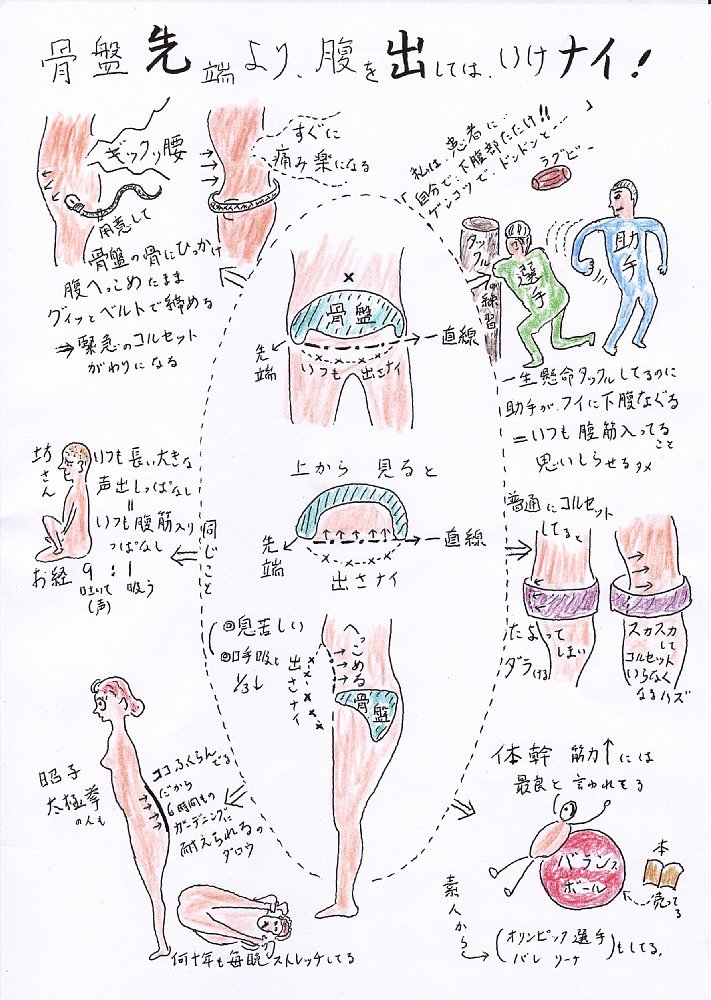 骨盤先端より、腹を出しては、いけナイ!
ギックリ腰
すぐに
痛み楽になる
用意して
骨盤の骨にひっかけ
腹へっこめたまま
グイッとベルトで締める
⇒緊急のコルセット
がわりになる
「私は、患者に…
自分で、下腹部たたけ!!
ゲンコツで、ドンドンと…」
ラグビー
タックル
の練習
選手
助手
一生懸命タックルしてるのに
助手が、フイに下腹なぐる
=いつも腹筋入ってる
こと
思いしらせるタメ
骨盤
先端
一直線
いつも出さナイ
上から見ると
先端
一直線
出さナイ
坊さん
いつも長い大きな
声出しっぱなし
=
いつも腹筋入り
っぱなし
お経 9:1
吐いて
(声)
吸う
同じこと
◎息苦しい
◎呼吸と
1/3し
出さナイ
へっこめる
骨盤
普通にコルセット
してると
たよって
しまい
ダラける
スカスカ
して
コルセット
いらなく
なるハズ
昭子
太極拳
の人も
ココふくらんでる
だから
6時間もの
ガーデニングに
耐えられるの
ダロウ
何十年も毎晩ストレッチしてる
体幹 筋力↑には
最良と言われてる
バランス
ボール
本
売ってる
素人から
(オリンピック選手
バレリーナ)もしてる。